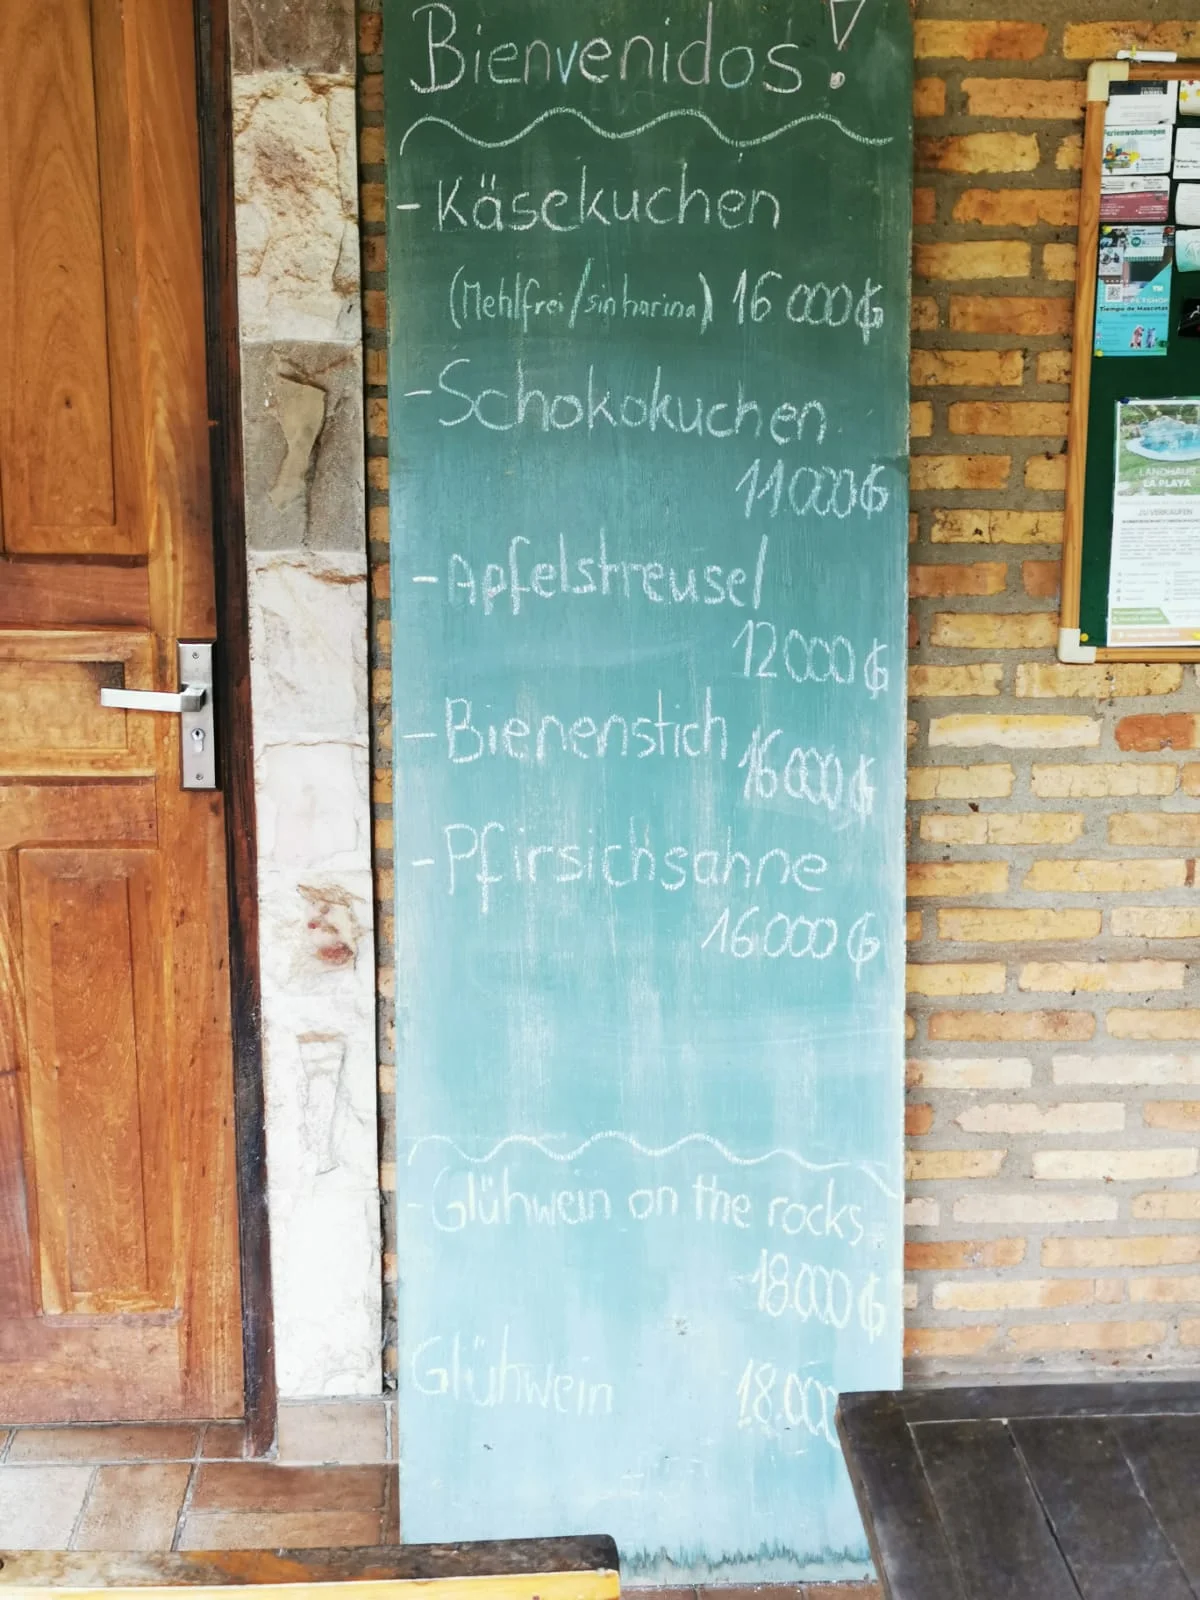 Bienvenidos!
- Käsekuchen
(Mehlfrei/sin harina) 16 000₲
- Schokokuchen
11.000₲
- Apfelstreusel
12000₲
- Bienenstich
16000₲
- Pfirsichsahne
16000₲
- Glühwein on the rocks
18.000₲
Glühwein 18.000
Ferienwohnungen
PETSHOP
Tiempo de Mascotas
LANDHAUS
LA PLAYA
ZU VERKAUFEN